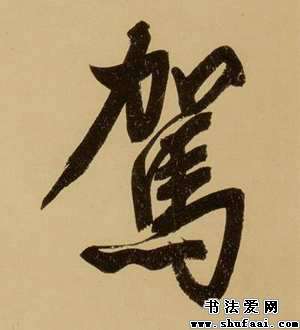 駕
书法爱网
www.shufaai.com